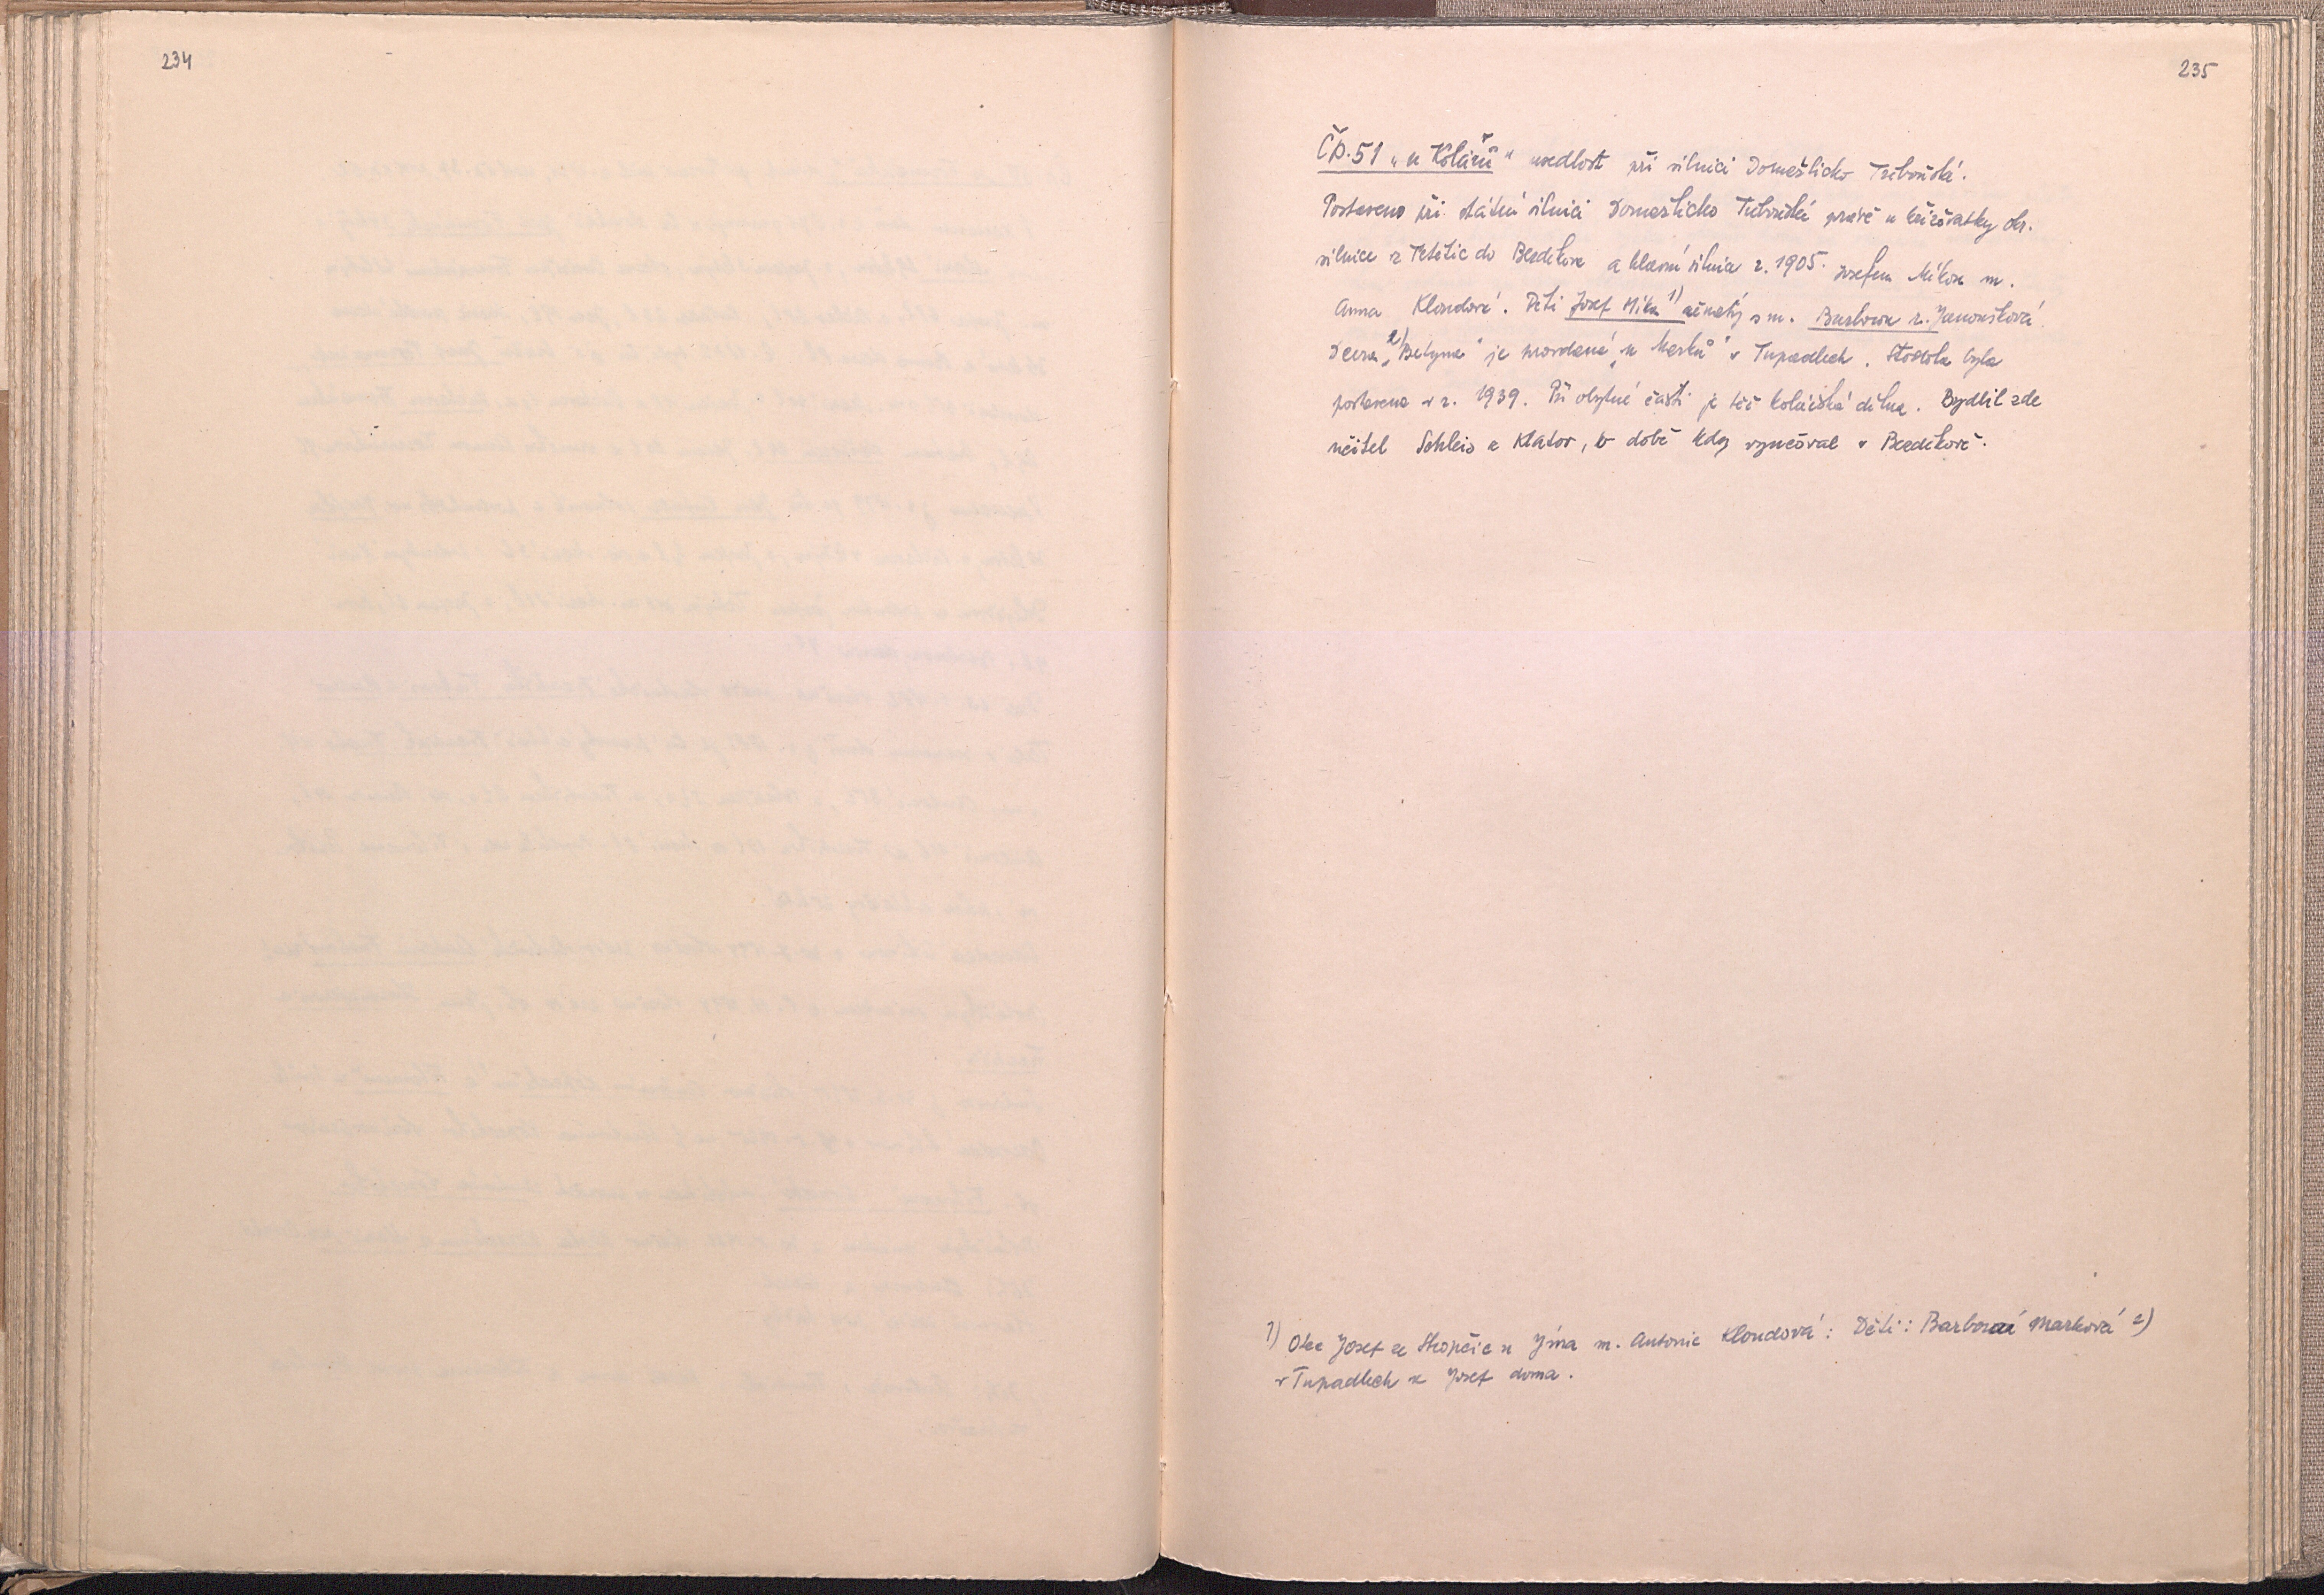 234
235
Čp. 51 „u Kolářů" usedlost při silnici Domažlicko Třeboňská.
Postaveno při státní silnici Domažlicko Třeboňská právě u křižovatky okr.
silnice z Tetětic do Bezděkova a hlavní silnice r. 1905. Josefem Míkou m.
Anna Kloudová. Děti Josef Míka 1) ženatý s m. Barborou r. Janoušková
Dcera 2) „Betyna" je provdaná „u Marků" v Tupadlech. Stodola byla
postavena v r. 1939. Při obytné části je též kolářská dílna. Bydlil zde
učitel Schleis z Klatov, v době kdy vyučoval v Bezděkově.
1) Otec Josef ze Strojčic u Jína m. Antonie Kloudová: Děti: Barbora Marková 2)
v Tupadlech a Josef doma.